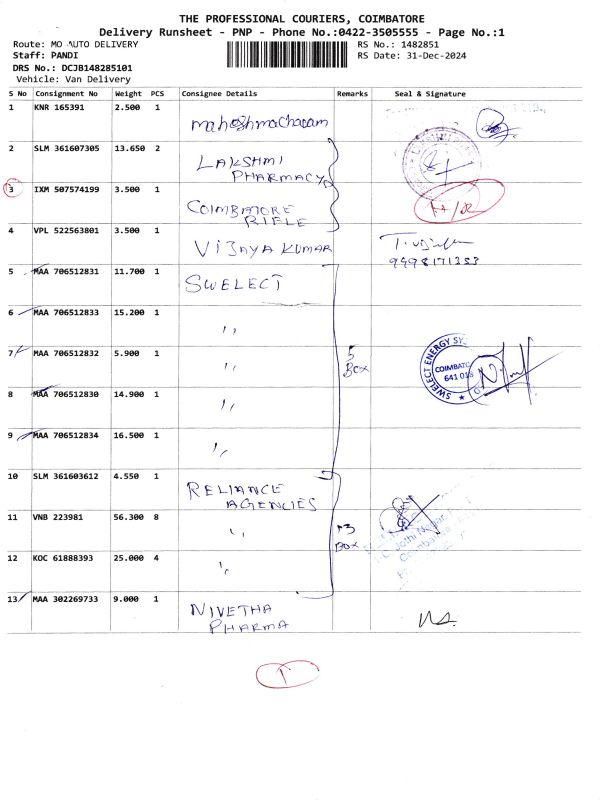 THE PROFESSIONAL COURIERS, COIMBATORE
Delivery Runsheet - PNP - Phone No.:0422-3505555 - Page No.:1
Route: MO AUTO DELIVERY RS No.: 1482851
Staff: PANDI RS Date: 31-Dec-2024
DRS No.: DCJB148285101
Vehicle: Van Delivery
S No Consignment No Weight PCS Consignee Details Remarks Seal & Signature
1 KNR 165391 2.500 1
2 SLM 361607305 13.650 2 LAKSHMI
PHARMACY
3 IXM 507574199 3.500 1 COIMBATORE
RIFLE
4 VPL 522563801 3.500 1 VIJAYA KUMAR
9498171353
5 MAA 706512831 11.700 1 SWELECT
6 MAA 706512833 15.200 1 ,,
7 MAA 706512832 5.900 1 ,, 5
BOX
SWELECT ENERGY SY
COIMBATO
641 018
8 MAA 706512830 14.900 1 ,,
9 MAA 706512834 16.500 1 ,,
10 SLM 361603612 4.550 1 RELIANCE
AGENCIES
11 VNB 223981 56.300 8 ,, 13
BOX
12 KOC 61888393 25.000 4 ,,
13 MAA 302269733 9.000 1 NIVETHA
PHARMA
1